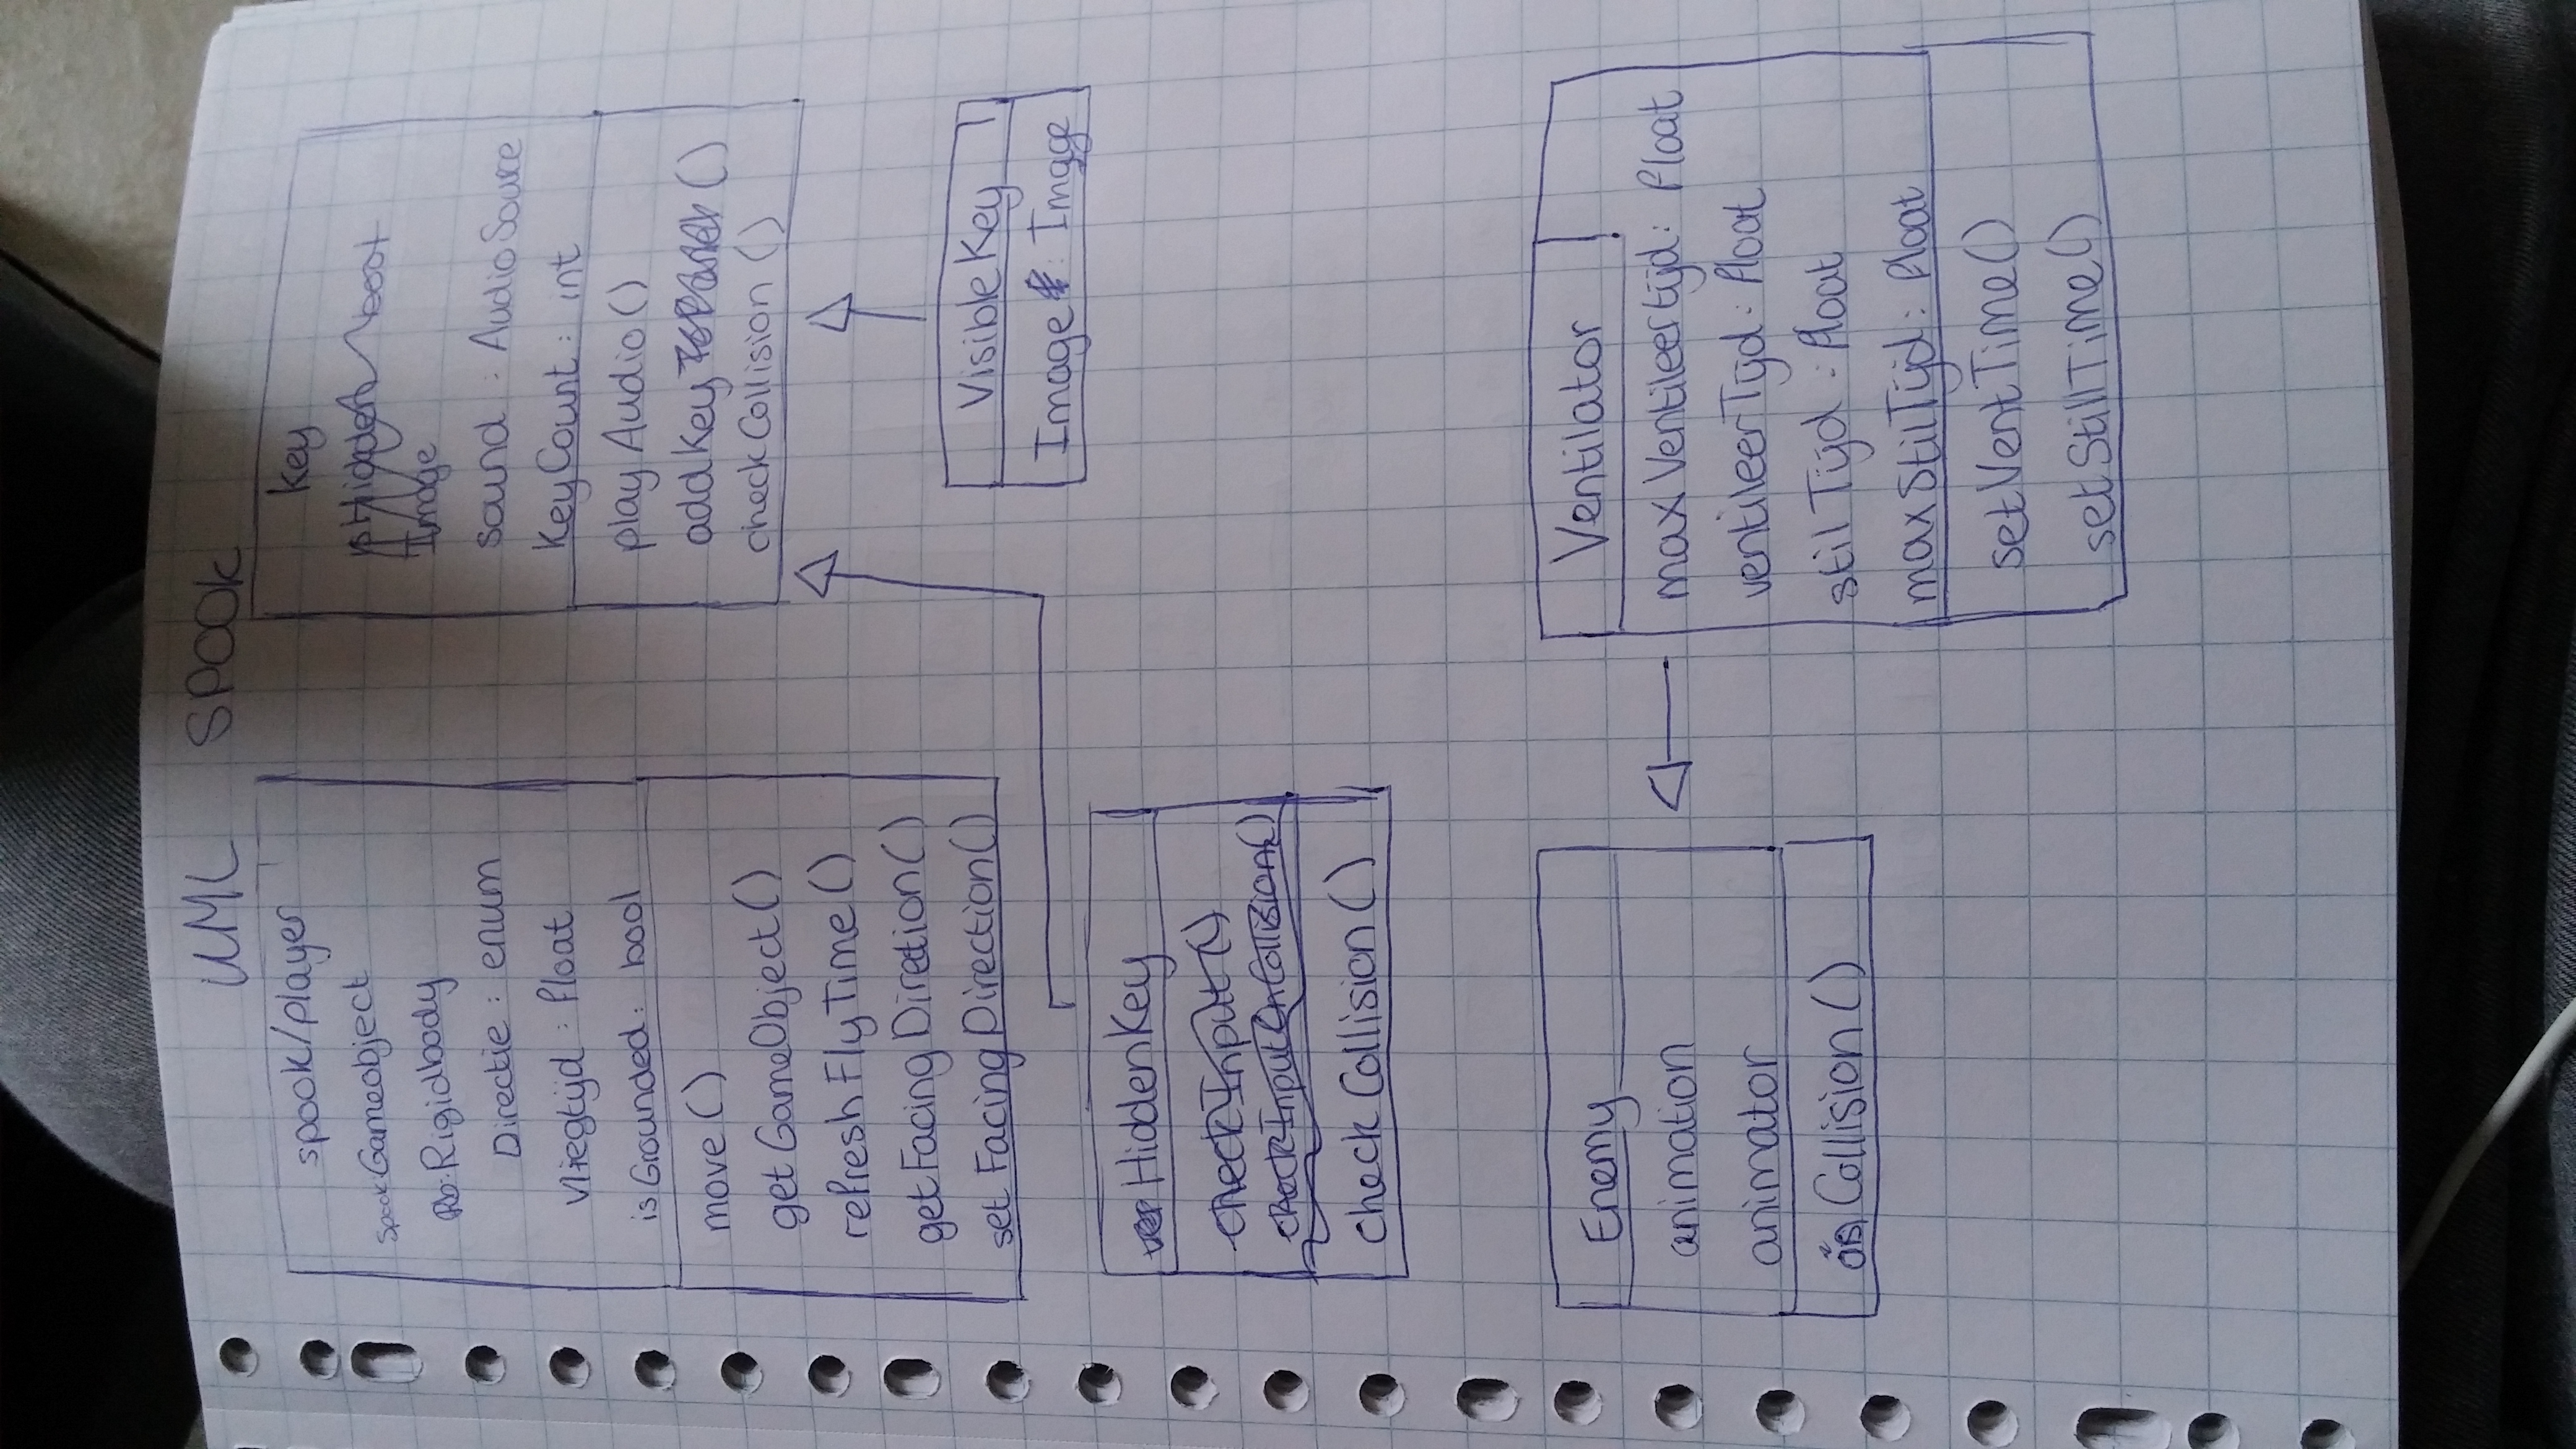 UML SPOOK
spook/player
Spook: Gameobject
Rb: Rigidbody
Directie : enum
Vliegtijd : float
isGrounded : bool
move ()
getGameObject ()
refreshFlyTime ()
getFacingDirection ()
setFacingDirection ()
Key
isHidden bool
Image
sound : AudioSource
KeyCount : int
playAudio ()
addKey ToPanel ()
checkCollision ()
VisibleKey
Image : Image
HiddenKey
checkInput ()
checkInputOnCollision ()
checkCollision ()
Enemy
animation
animator
onCollision ()
Ventilator
maxVentileertijd : float
ventileerTijd : float
stilTijd : float
maxStilTijd : float
setVentTime ()
setStillTime ()